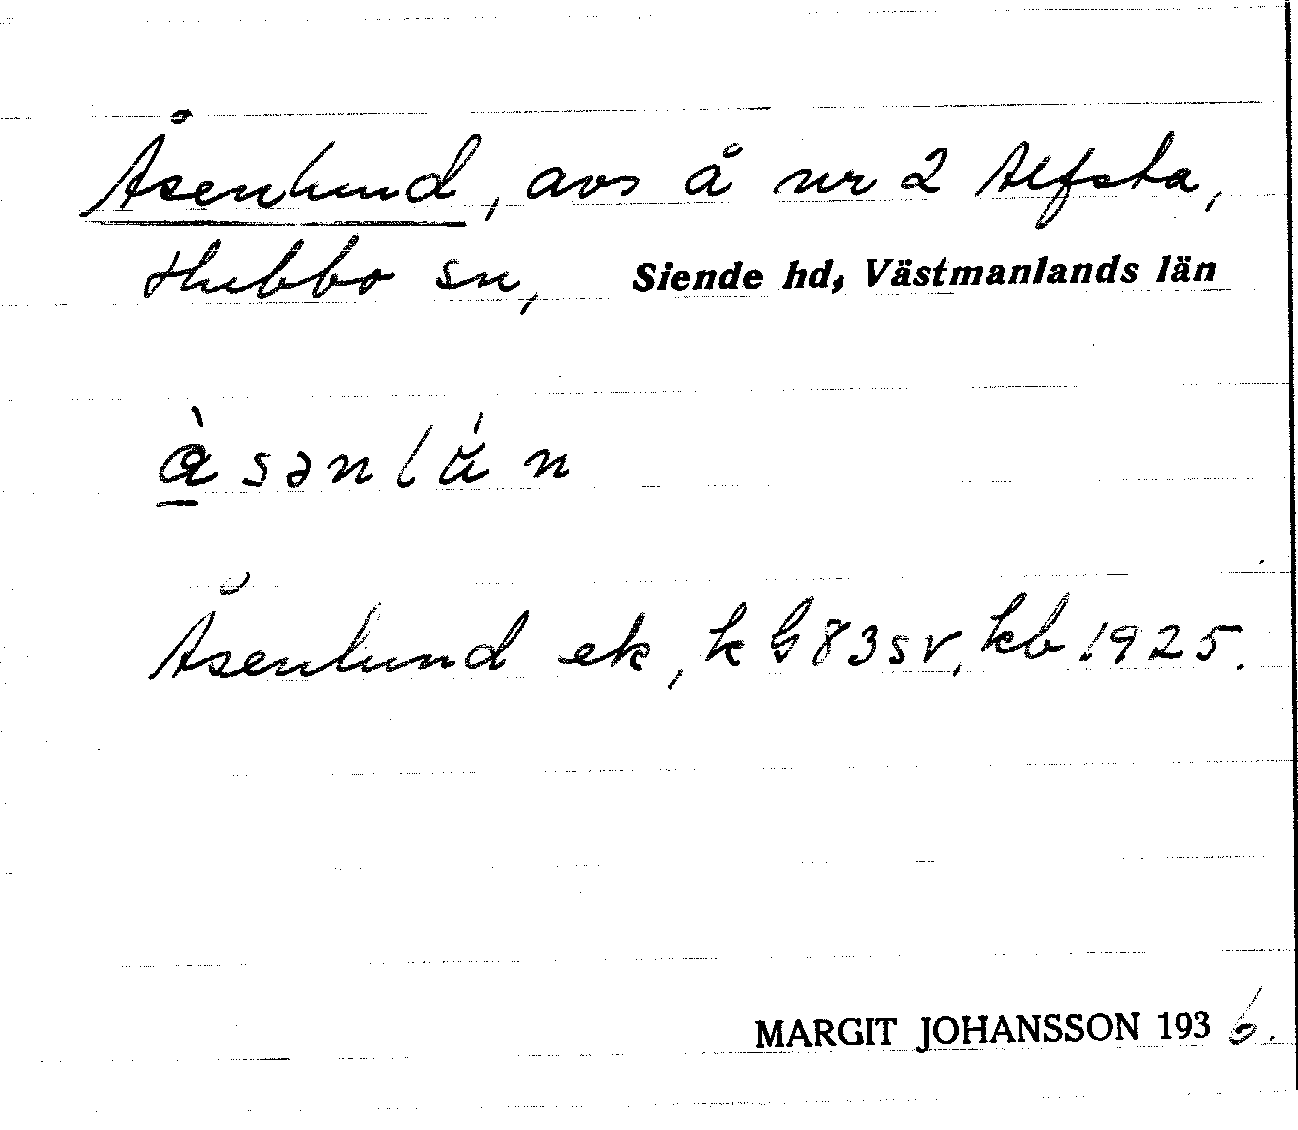 Åsenlund, avs å nr 2 Alfsta,
Hubbo sn, Siende hd, Västmanlands län
å̀sənlú̆n
Åsenlund ek, k G83sv, kb 1925.
MARGIT JOHANSSON 1936.